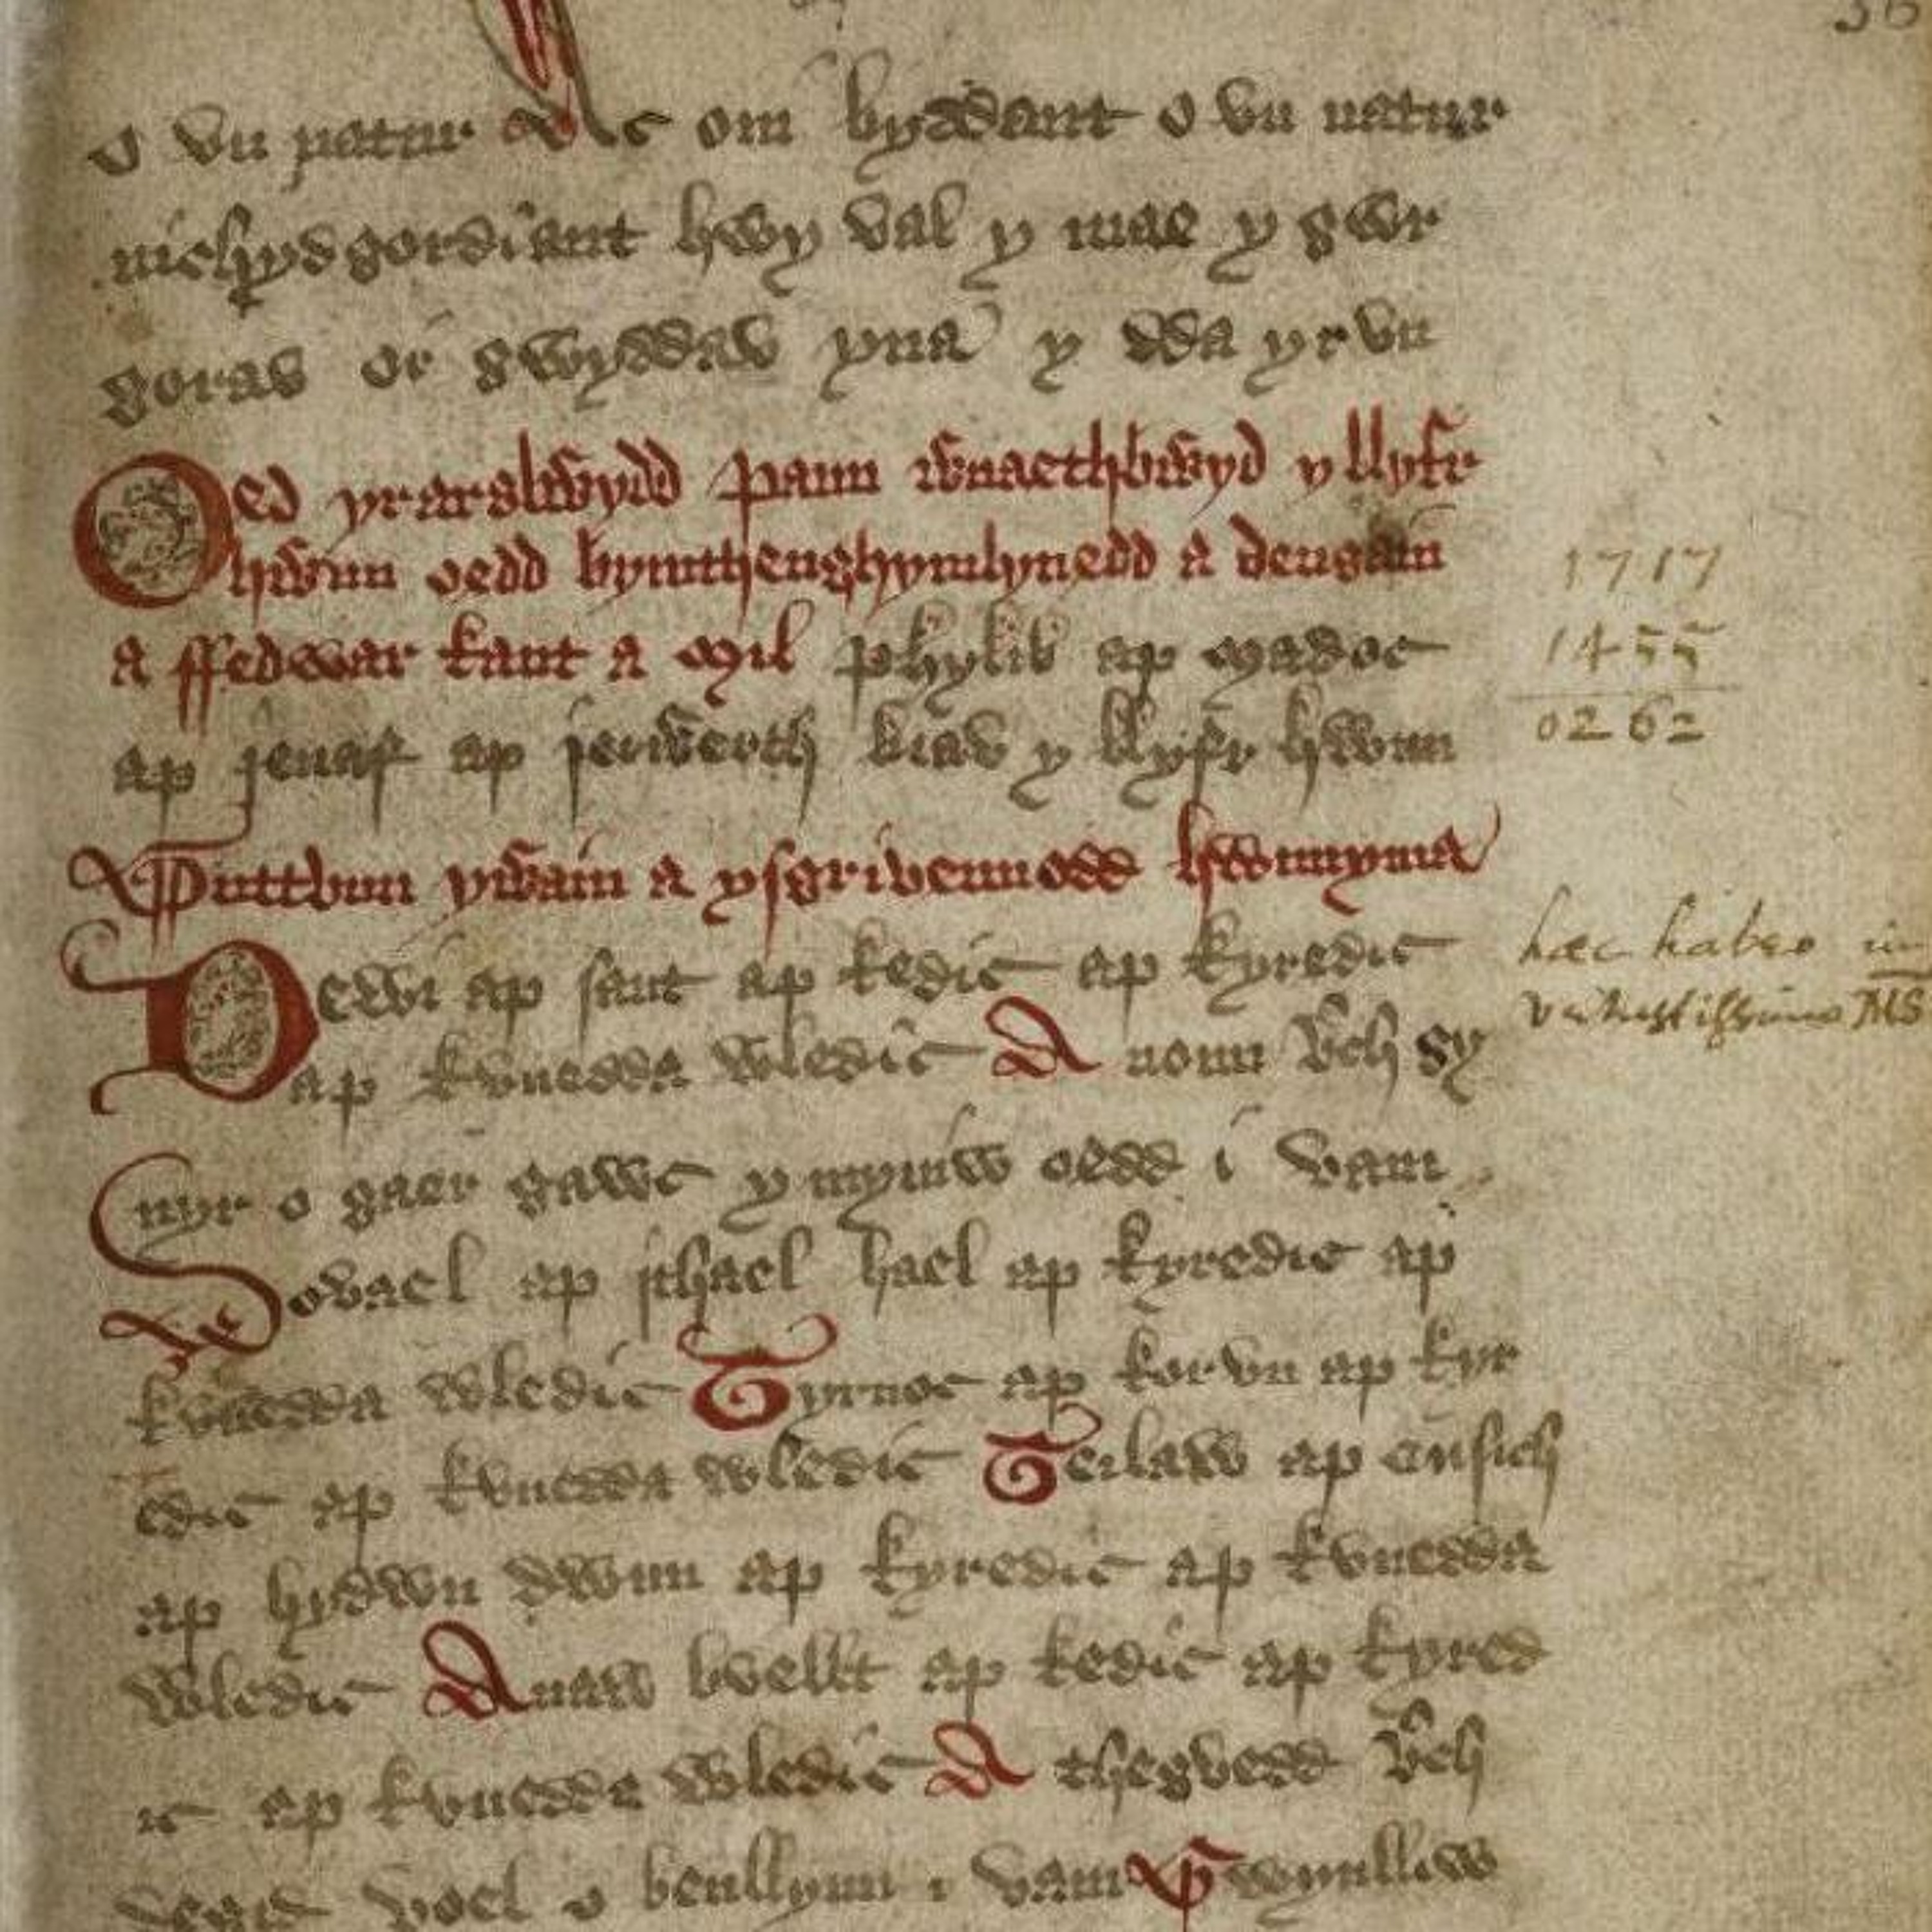 36
o vn natur Ac om byddant o vn natur
nichydgordiant hwy val y mae y gwr
goras or gwyddav yna y dda yr vn
Oed yr arglwydd pann wnaethbwyd y llyfr
hwnn oedd bymthenghymlynedd a deugain
a ffedwar kant a mil phylib ap madoc
ap jenaf ap jerwerth biav y llyfr hwnn
Puttvun ywain a ysgrivennodd hwnnyma
Dewi ap sant ap kedic ap kyredic
ap kvnedda wledic A nonn verch gy
nyr o gaer gawc ymyniw oedd i vam
Sovael ap ithael hael ap kyredic ap
kvnedda wledic Tyrnoc ap korvn ap kyr
edic ap kvnedda wledic Teilaw ap ensich
ap hydwn dwnn ap kyredic ap kvnedda
wledic Anaw bvellt ap kedic ap kyred
ic ap kvnedda wledic A thegvedd verch
degid voel o benllynn i vam Gwynlliw
1717
1455
0262
hæc habeo in
vetustissimo MS